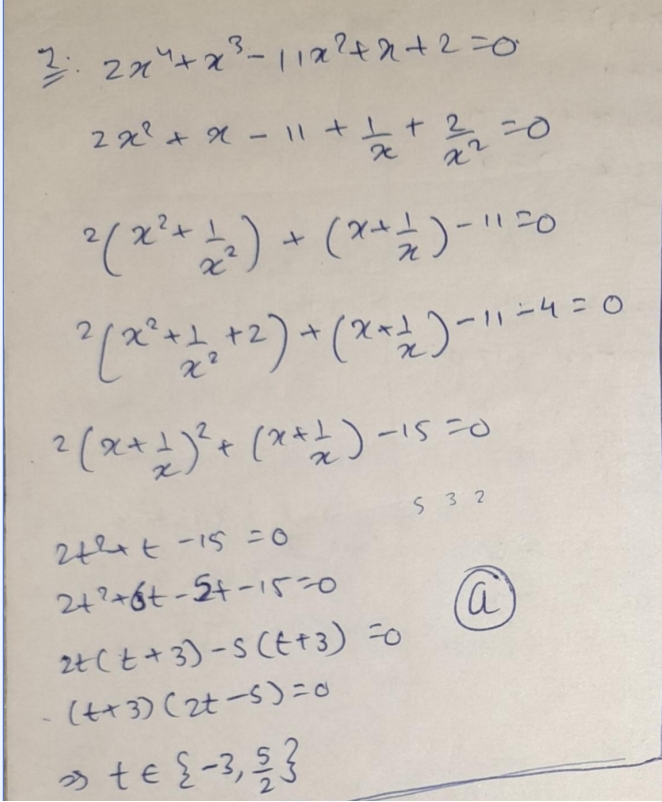 2. 2x⁴ + x³ - 11x² + x + 2 = 0
2x² + x - 11 + 1/x + 2/x² = 0
2(x² + 1/x²) + (x + 1/x) - 11 = 0
2(x² + 1/x² + 2) + (x + 1/x) - 11 - 4 = 0
2(x + 1/x)² + (x + 1/x) - 15 = 0
5 3 2
2t² + t - 15 = 0
2t² + 6t - 5t - 15 = 0
a
2t(t + 3) - 5(t + 3) = 0
(t + 3)(2t - 5) = 0
⇒ t ∈ {-3, 5/2}